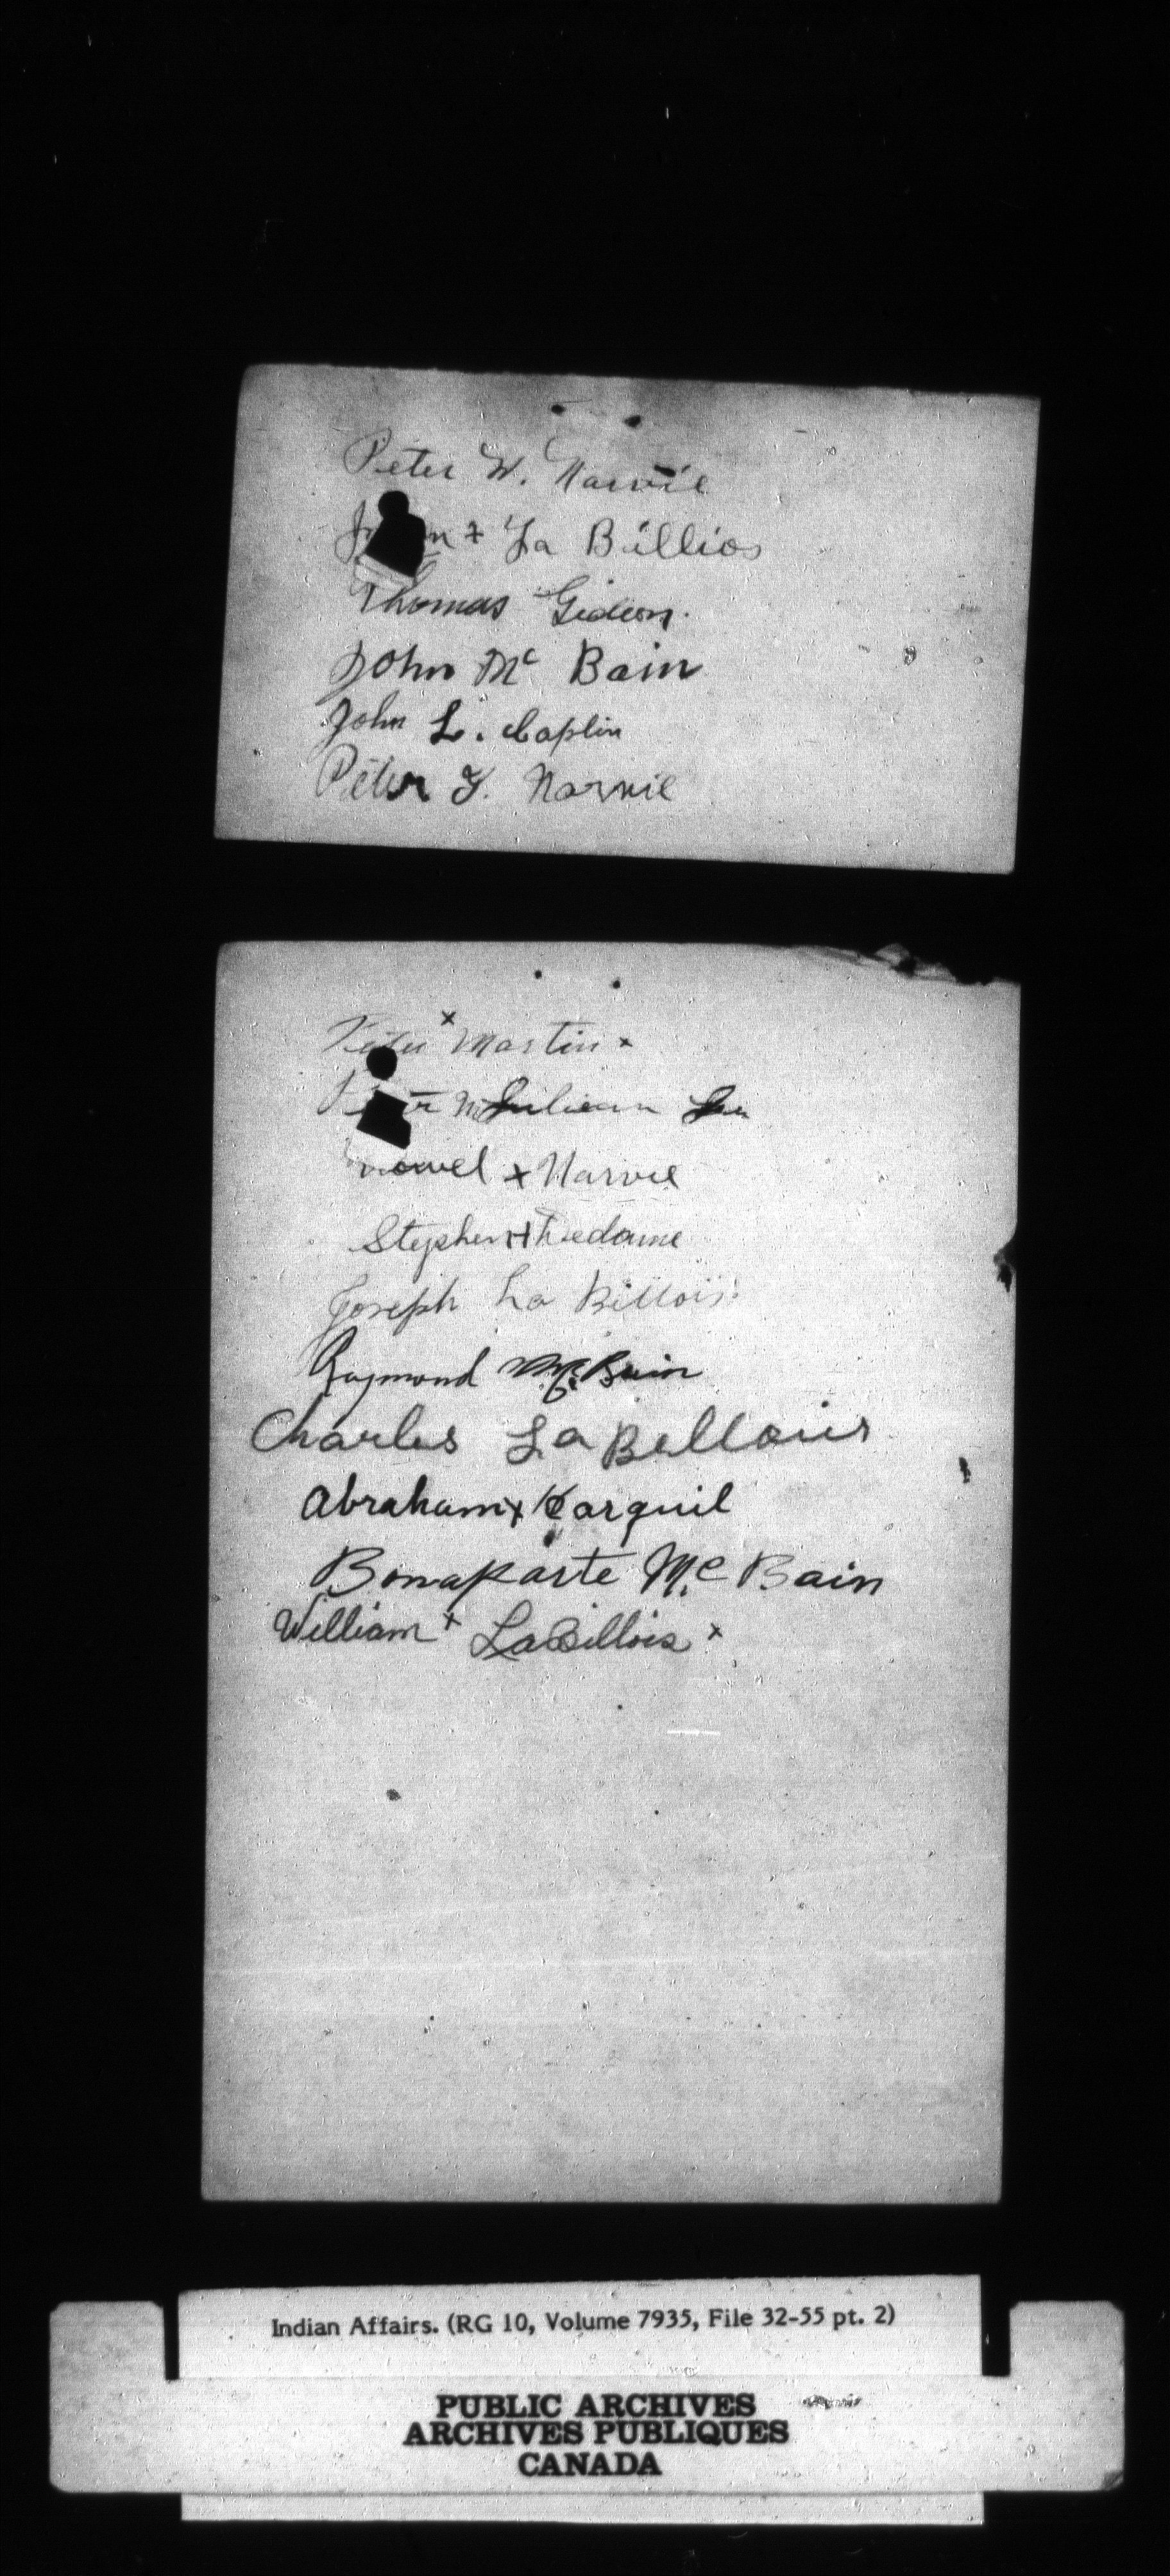 Peter W. Narvie
n + La Billios
Thomas Gideon.
John Mc Bain
John L. Caplin
Peter F. Narvie
Peter x Martin x
Julian
x Narvie
Stephen + Vedame
Joseph La Billois
Raymond McBain
Charles La Bellois
Abraham x Carquil
Bonaparte Mc Bain
William x LaBillois x
Indian Affairs. (RG 10, Volume 7935, File 32-55 pt. 2)
PUBLIC ARCHIVES
ARCHIVES PUBLIQUES
CANADA